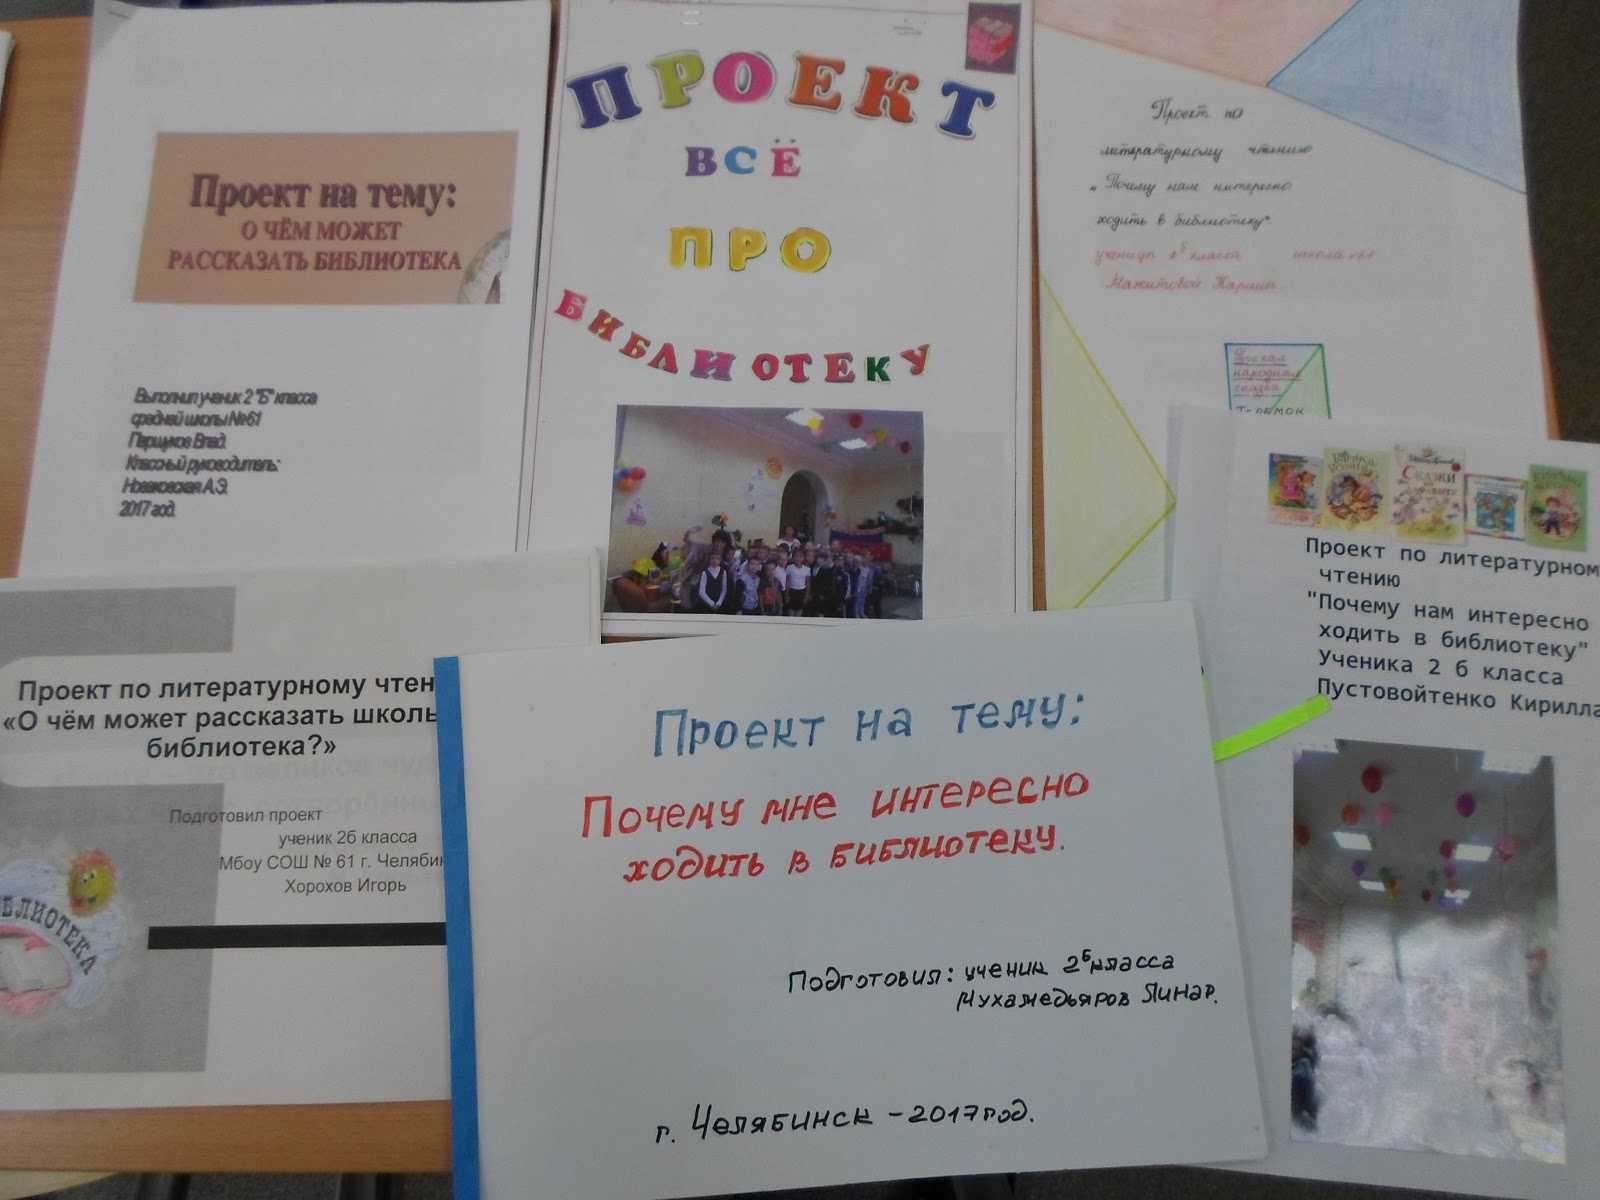 Проект на тему:
О ЧЁМ МОЖЕТ
РАССКАЗАТЬ БИБЛИОТЕКА
Выполнил ученик 2 "Б" класса
средней школы №61
Паршуков Влад.
Классный руководитель:
Новаковская А.Э.
2017 год.
ПРОЕКТ
ВСЁ
ПРО
БИБЛИОТЕКУ
Проект по
литературному чтению
„Почему нам интересно
ходить в библиотеку"
ученицы 2 б класса школа №61
народная
сказка
Теремок
СКАЗКИ
Проект по литературном
чтению
"Почему нам интересно
ходить в библиотеку"
Ученика 2 б класса
Пустовойтенко Кирилла
Проект по литературному чтен
«О чём может рассказать школь
библиотека?»
Подготовил проект
ученик 2б класса
Мбоу СОШ № 61 г. Челябин
Хорохов Игорь
БЛИОТЕКА
Проект на тему:
Почему мне интересно
ходить в библиотеку.
Подготовил: ученик 2б класса
Мухамедьяров Линар.
г. Челябинск – 2017 год.